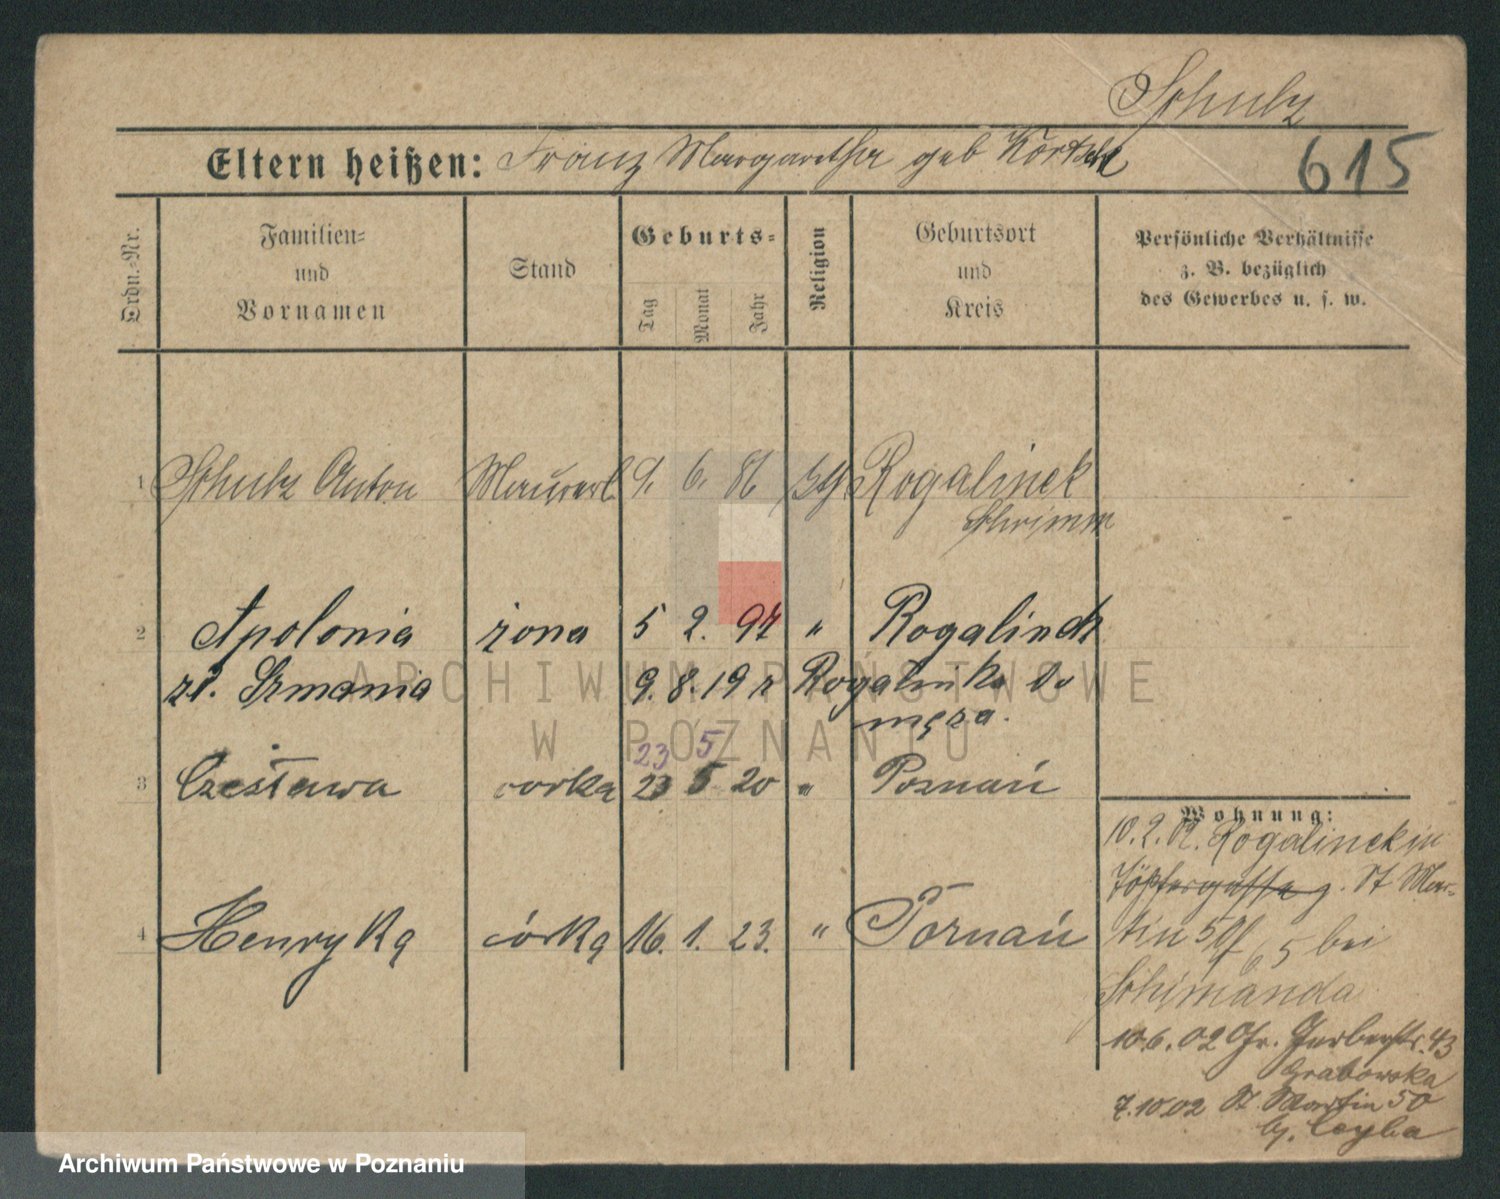 Schulz
Eltern heißen: Franz Margaretha geb
615
Ordn.-Nr.
Familien-
und
Vornamen
Stand
Geburts-
Tag
Monat
Jahr
Religion
Geburtsort
und
Kreis
Persönliche Verhältnisse
z. B. bezüglich
des Gewerbes u. s. w.
1 Schulz Anton Maurerl. 9. 6. 86 Rogalinek
Schrimm
2 Apolonia żona 5 2. 97 " Rogalinek
9. 8. 19 r Rogalinka do
męża.
23 5
3 Czesława corka 23 5 20 " Poznań
4 Henryka córka 16. 1. 23. " Poznań
Wohnung:
10. 2. 02. Rogalinek in
Töpfergasse St Mar-
tin 50 5 bei
Schimanda
10.6.02 Gr. Gerberstr. 43
Grabowska
7.10.02 St. Martin 50
Ceyba
ARCHIWUM PAŃSTWOWE
W POZNANIU
Archiwum Państwowe w Poznaniu